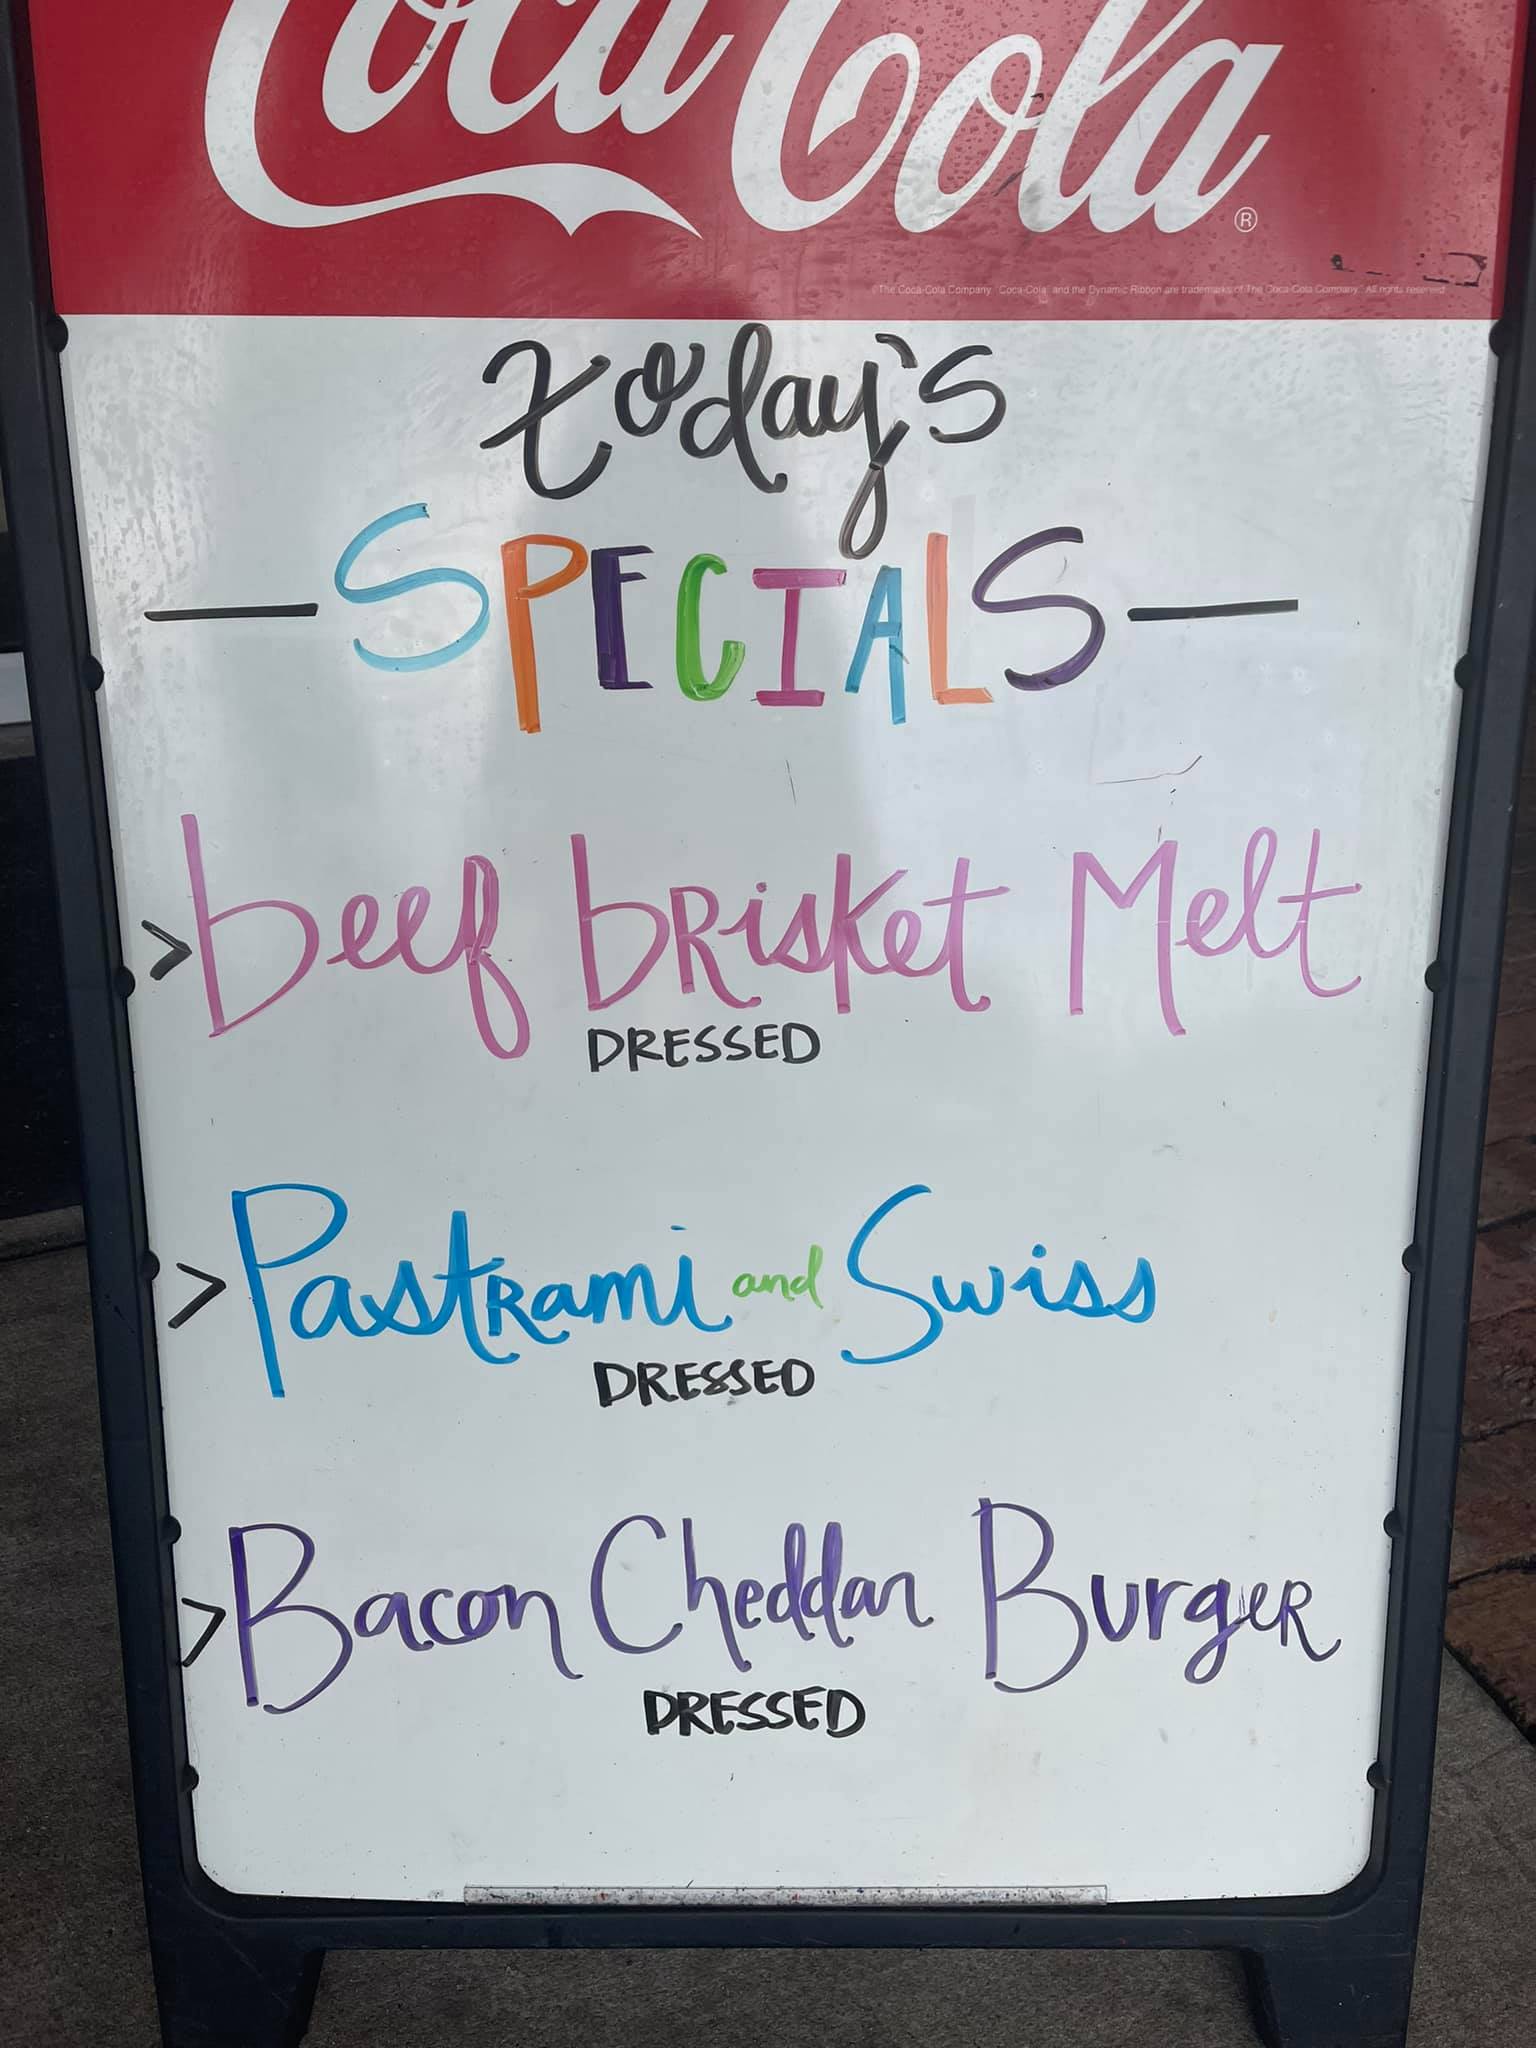 Coca-Cola®
©The Coca-Cola Company. "Coca-Cola" and the Dynamic Ribbon are trademarks of The Coca-Cola Company. All rights reserved.
today's
—SPECIALS—
>beef bRisket Melt
DRESSED
>PastRami and Swiss
DRESSED
>Bacon Cheddar BurgeR
DRESSED